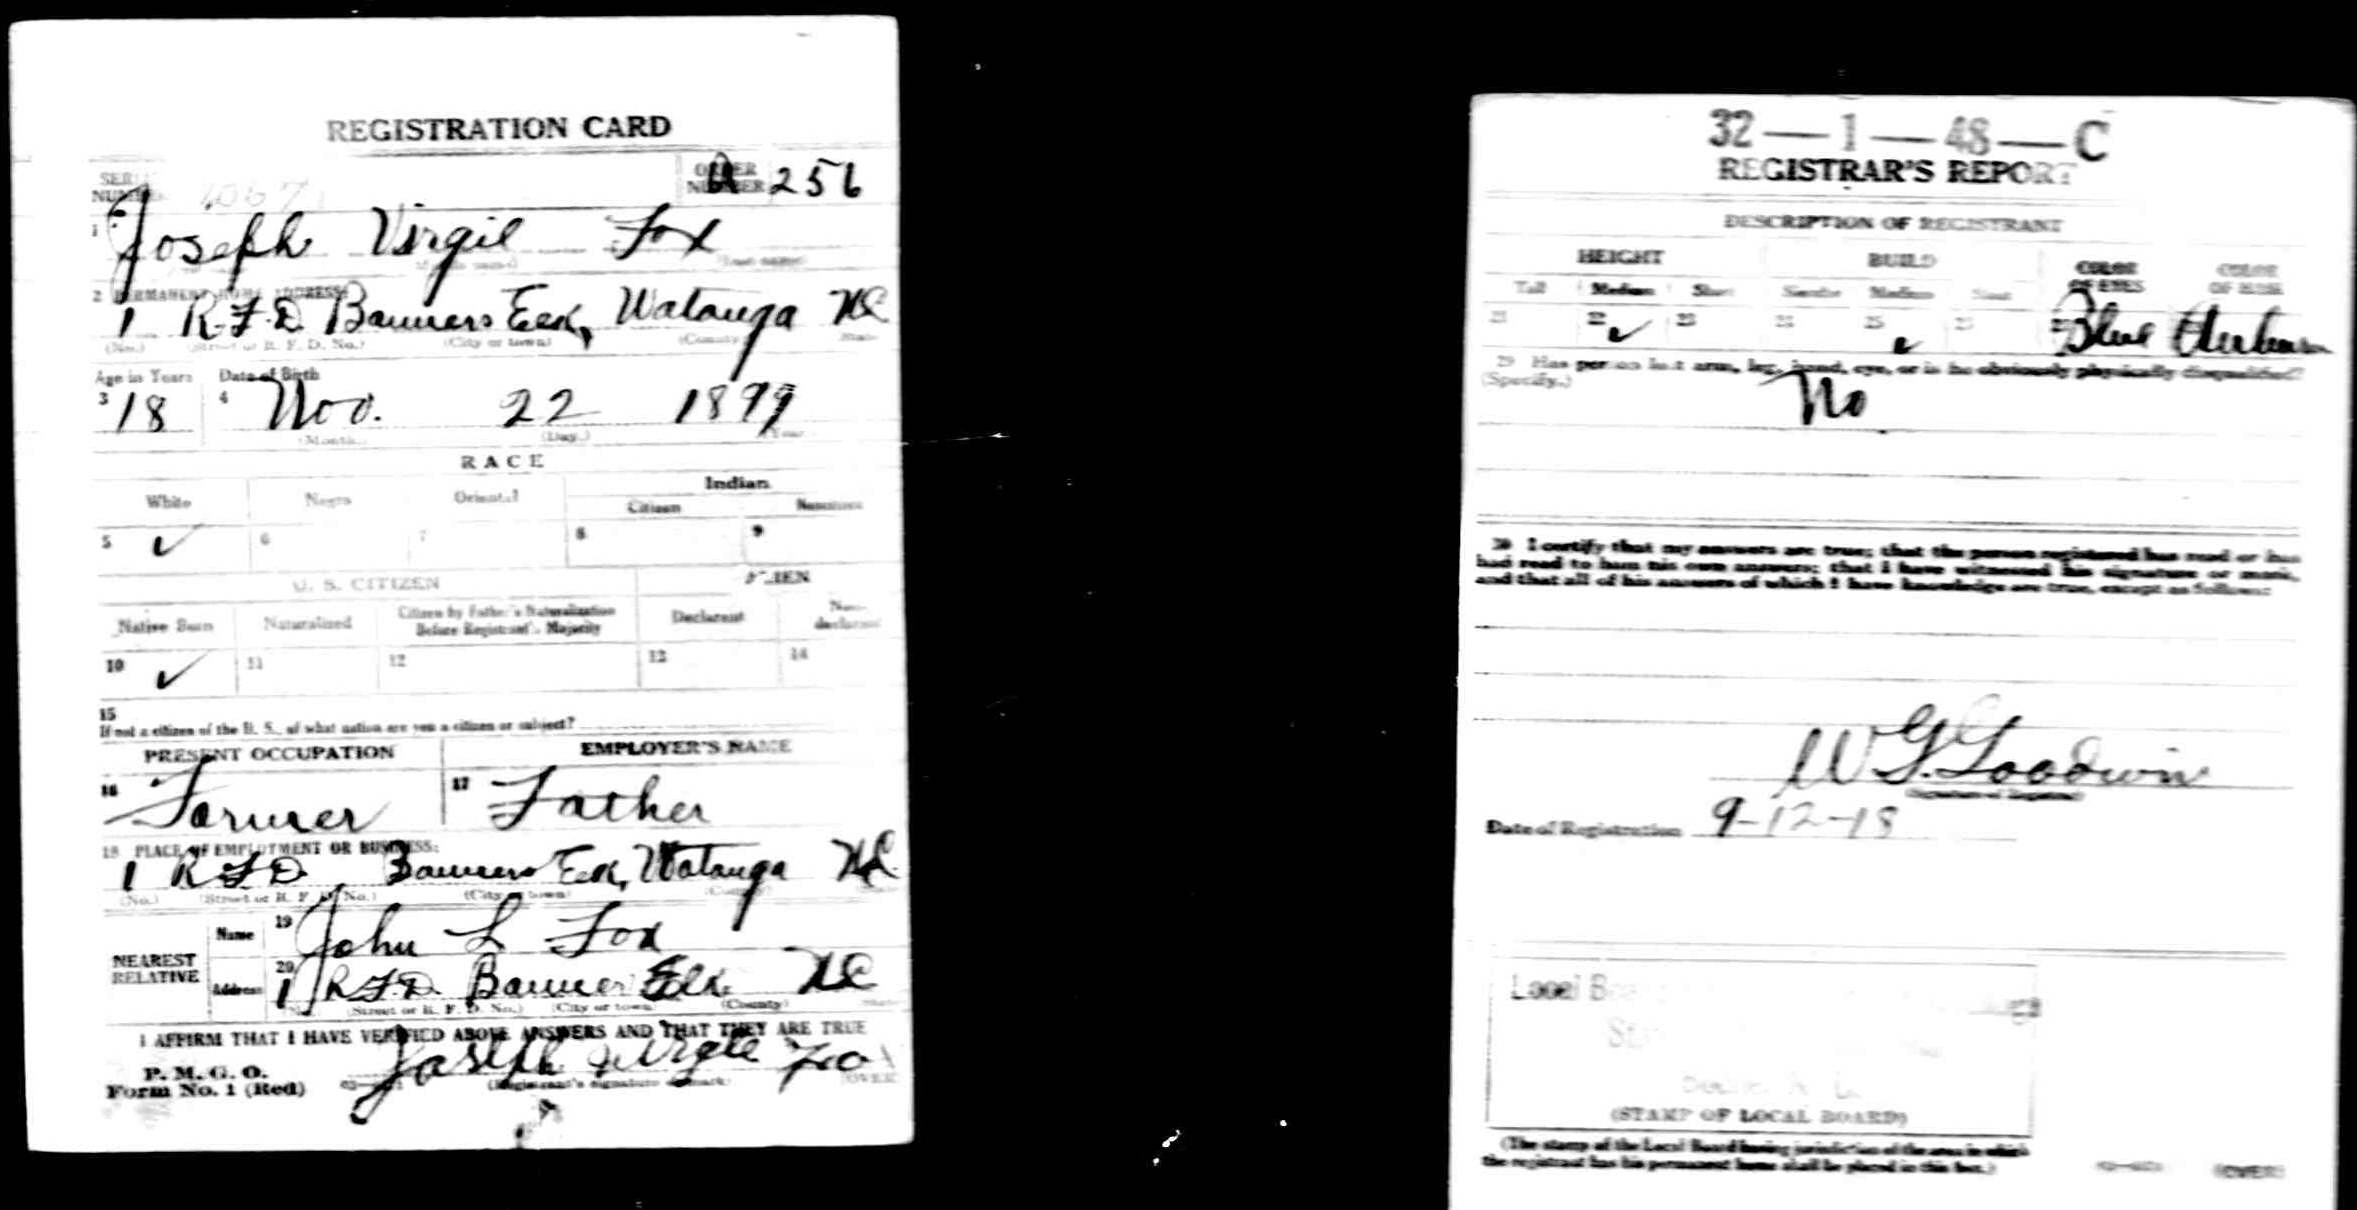 REGISTRATION CARD
SERIAL NUMBER
ORDER NUMBER A 256
1 Joseph Virgil Fox
(Last name)
2 PERMANENT HOME ADDRESS:
1 R.F.D. Banners Elk, Watauga NC
(No.) (Street or R. F. D. No.) (City or town) (County) State
Age in Years Date of Birth
3 18 4 Nov. 22 1899
(Month.) (Day.) Year
RACE
White Negro Oriental Indian
Citizen Noncitizen
5 ✓ 6 7 8 9
U. S. CITIZEN ALIEN
Native Born Naturalized Citizen by Father's Naturalization Before Registrant's Majority Declarant Non-declarant
10 ✓ 11 12 13 14
15
If not a citizen of the U. S., of what nation are you a citizen or subject?
PRESENT OCCUPATION EMPLOYER'S NAME
16 Farmer 17 Father
18 PLACE OF EMPLOYMENT OR BUSINESS:
1 R.F.D. Banners Elk, Watauga NC.
(No.) (Street or R. F. D. No.) (City or town) (County) State
NEAREST RELATIVE
Name 19 John L Fox
Address 20 1 R.F.D. Banner Elk NC
(Street or R. F. D. No.) (City or town) (County) State
I AFFIRM THAT I HAVE VERIFIED ABOVE ANSWERS AND THAT THEY ARE TRUE
P. M. G. O.
Form No. 1 (Red)
Joseph Virgle Fox
(Registrant's signature or mark) (OVER)
32—1—48—C
REGISTRAR'S REPORT
DESCRIPTION OF REGISTRANT
HEIGHT BUILD COLOR OF EYES COLOR OF HAIR
Tall Medium Short Slender Medium Stout
21 22 ✓ 23 24 25 ✓ 27 Blue Auburn
29 Has person lost arm, leg, hand, eye, or is he obviously physically disqualified?
(Specify.) No
30 I certify that my answers are true; that the person registered has read or has
had read to him his own answers; that I have witnessed his signature or mark,
and that all of his answers of which I have knowledge are true, except as follows:
W G. Goodwin
(Signature of Registrar)
Date of Registration 9-12-18
Local
(STAMP OF LOCAL BOARD)
(The stamp of the Local Board having jurisdiction of the area in which
the registrant has his permanent home shall be placed in this box.)
(OVER)